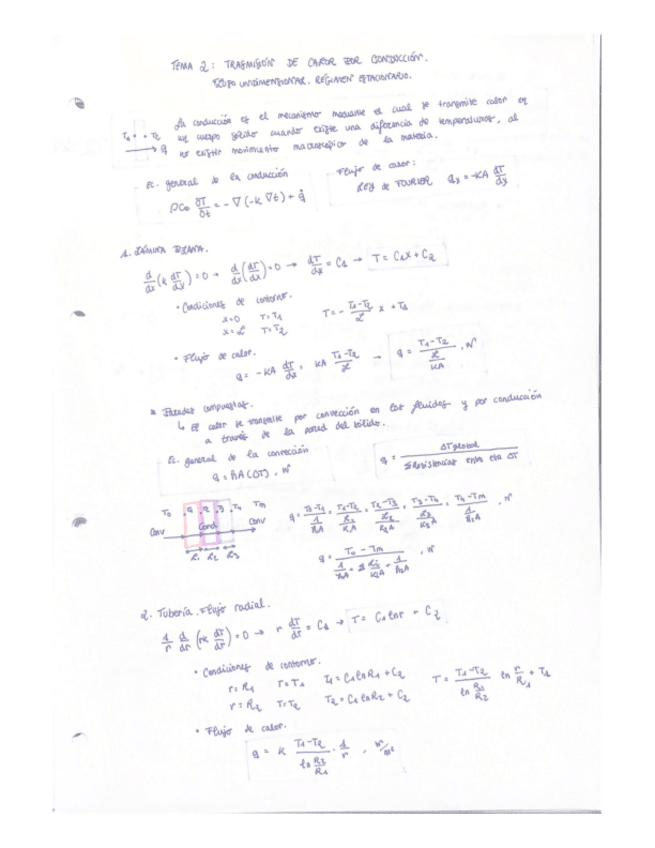 TEMA 2: TRASMISIÓN DE CALOR POR CONDUCCIÓN.
FLUJO UNIDIMENSIONAL. RÉGIMEN ESTACIONARIO.
La conducción es el mecanismo mediante el cual se transmite calor en
T₁ T₂ un cuerpo sólido cuando existe una diferencia de temperaturas, al
q no existir movimiento macroscópico de la materia.
Ec. general de la conducción
ρCp ∂T/∂t = -∇(-k ∇t) + q̇
Flujo de calor:
LEY DE FOURIER qx = -KA dT/dx
1. LÁMINA PLANA.
d/dx (k dT/dx) = 0 → d/dx (dT/dx) = 0 → dT/dx = C₁ → T = C₁x + C₂
• Condiciones de contorno.
x=0 T=T₁ T = - (T₁-T₂)/L x + T₁
x=L T=T₂
• Flujo de calor.
q = -KA dT/dx = KA (T₁-T₂)/L → q = (T₁-T₂)/(L/KA), W
Paredes compuestas.
↳ El calor se transmite por convección en los fluidos y por conducción
a través de la pared del sólido.
Ec. general de la convección
q = hA(ΔT), W
q = ΔTglobal / Σ Resistencias entre ΔT
T₀ T₄ Tm
Conv Cond Conv
L₁ L₂ L₃
q = (T₀-Tm)/(1/hA + Σ Li/KiA + 1/hA), W
2. Tubería. Flujo radial.
1/r d/dr (rk dT/dr) = 0 → r dT/dr = C₁ → T = C₁ lnr + C₂
• Condiciones de contorno.
r = R₁ T = T₁ T₁ = C₁ ln R₁ + C₂
r = R₂ T = T₂ T₂ = C₁ ln R₂ + C₂
T = (T₁-T₂)/(ln R₁/R₂) ln r/R₁ + T₁
• Flujo de calor.
q = k (T₁-T₂)/(ln R₂/R₁) · 1/r, W/m²